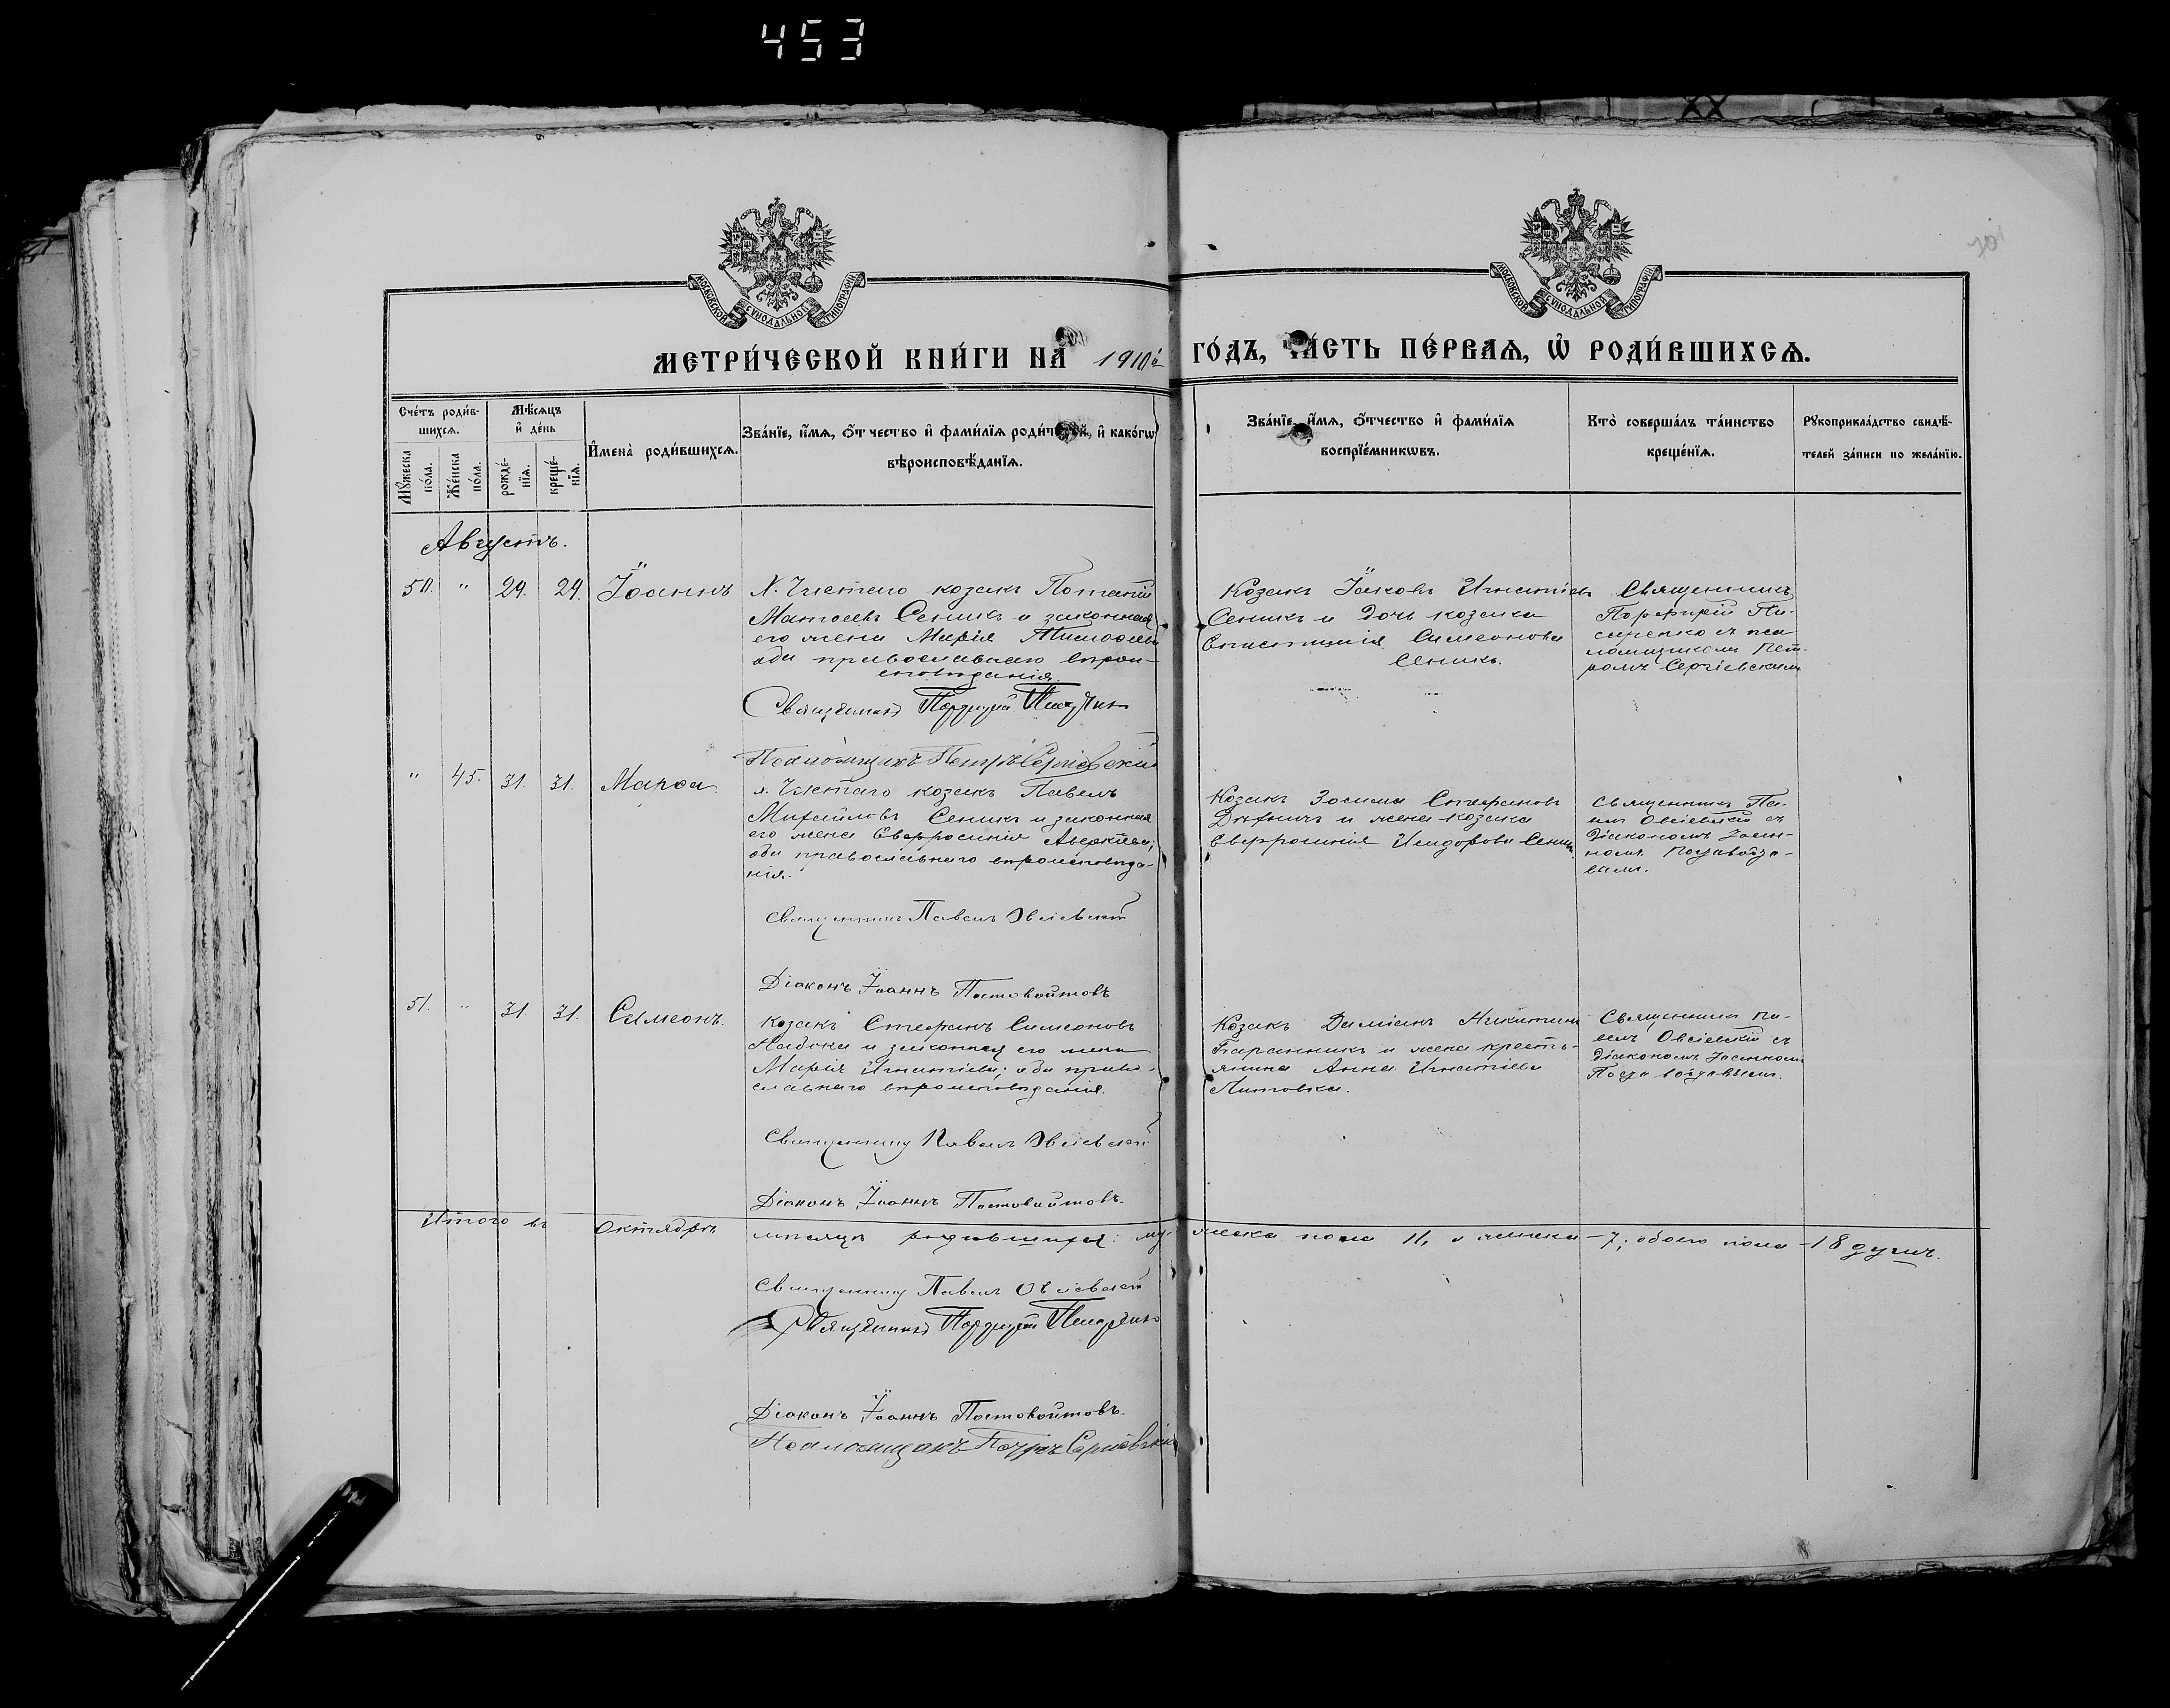 453
МОСКОВСКОЙ СѴНОДАЛЬНОЙ ТИПОГРАФІИ
МОСКОВСКОЙ СѴНОДАЛЬНОЙ ТИПОГРАФІИ
701
МЕТРИ́ЧЕСКОЙ КНИ́ГИ НА 1910й
ГО́ДЪ, ЧА́СТЬ ПЕ́РВАѦ, Ѡ҆ РОДИ́ВШИХСѦ.
Сче́тъ роди́в-
шихсѧ.
Мѣ́сѧцъ
и҆ де́нь
Мꙋ́жеска
по́ла.
Же́нска
по́ла.
рожде́-
нїѧ.
креще́-
нїѧ.
И҆мена̀ роди́вшихсѧ.
Зва́нїе, и҆́мѧ, ѻ҆́тчество и҆ фами́лїѧ роди́телей, и҆ како́гѡ
вѣроисповѣ́данїѧ.
Зва́нїе, и҆́мѧ, ѻ҆́тчество и҆ фами́лїѧ
воспрїе́мникѡвъ.
Кто̀ соверша́лъ та́инство
креще́нїѧ.
Рꙋкоприкла́дство свидѣ́-
телей за́писи по жела́нїю.
Августъ.
50. " 29. 29. Іоаннъ
х. Чистаго козакъ Потапій
Матѳеевъ Сеникъ и законная
его жена Марія Тимоѳеева
оба православнаго вѣрои-
сповѣданія.
Священникъ Порфирій Писаренко
Псаломщикъ Петръ Сергіевскій
Козакъ Іаковъ Игнатіевъ
Сеникъ и дочь козака
Симеонова
Сеникъ.
Священникъ
Порфирій Пи-
саренко съ пса-
ломщикомъ Пет-
ромъ Сергіевскимъ
" 45. 31. 31. Марѳа.
х. Чистаго козакъ Павелъ
Михайловъ Сеникъ и законная
его жена Евфросинія Аверкіева;
оба православнаго вѣроисповѣда-
нія.
Священникъ Павелъ Овсіевскій
Діаконъ Іоаннъ Постовойтовъ
Козакъ Зосима Стефановъ
и жена козака
Евфросинія Исидорова Сеникъ.
Священникъ Па-
велъ Овсіевскій съ
діакономъ Іоан-
номъ
51. " 31. 31. Симеонъ.
Козакъ Стефанъ Симеоновъ
и законная его жена
Марія Игнатіева; оба право-
славнаго вѣроисповѣданія.
Священникъ Павелъ Овсіевскій
Діаконъ Іоаннъ Постовойтовъ.
Козакъ Даміанъ Никитинъ
Баранникъ и жена кресть-
янина Анна Игнатіева
Литовка.
Священникъ Па-
велъ Овсіевскій съ
діакономъ Іоанномъ
Итого въ Октябрѣ мѣсяцѣ родившихся: му-
жеска пола 11, а женска - 7; обоего пола - 18 душъ.
Священникъ Павелъ Овсіевскій
Священникъ Порфирій Писаренко
Діаконъ Іоаннъ Постовойтовъ.
Псаломщикъ Петръ Сергіевскій